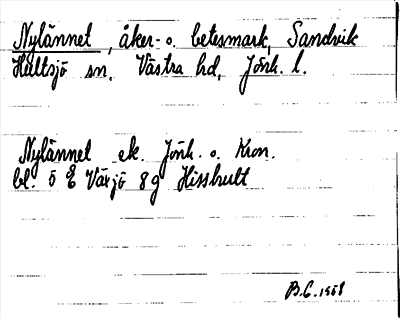 Nylännet, åker- o. betesmark, Sandvik
Hultsjö sn, Västra hd, Jönk. l.
Nylännet ek. Jönk. o. Kron.
bl. 5 E Växjö 8g Hisshult
B.C. 1958